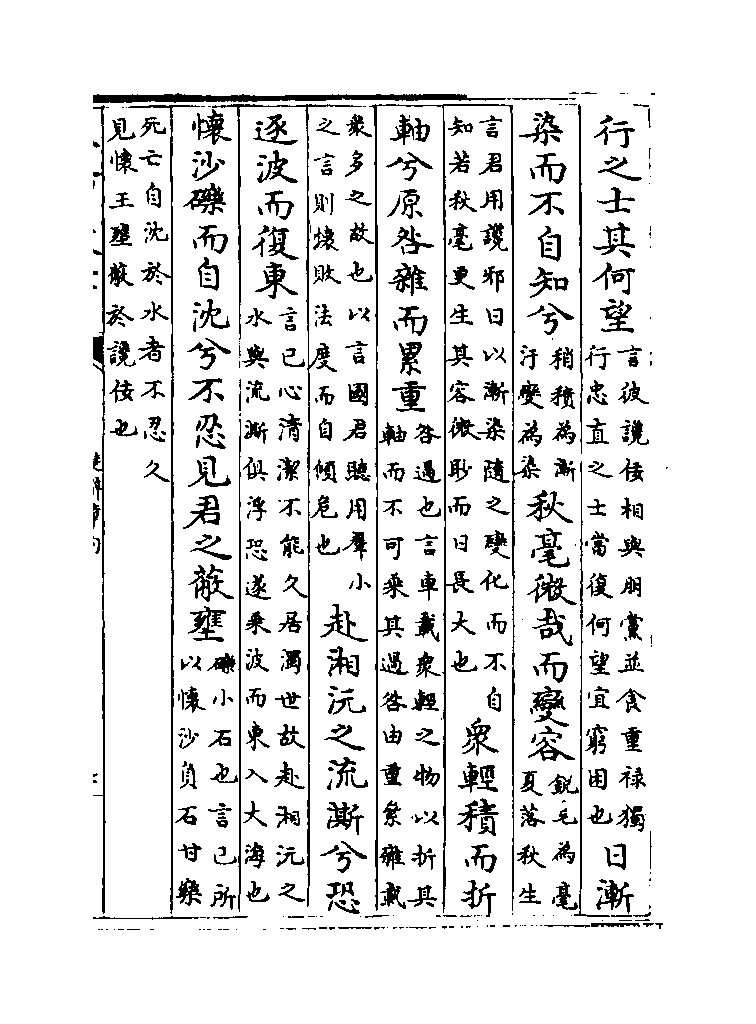 行之士其何望言彼讒佞相與朋黨並食重祿獨行忠直之士當復何望宜窮困也日漸
染而不自知兮稍積為漸汙變為染秋毫微哉而變容銳毛為毫夏落秋生
言君用讒邪日以漸染隨之變化而不自知若秋毫更生其容微眇而日長大也衆輕積而折
軸兮原咎雜而累重咎過也言車載衆輕之物以折其軸而不可乗其過咎由重絫雜載
衆多之故也以言國君聽用羣小之言則壞敗法度而自傾危也赴湘沅之流澌兮恐
逐波而復東言已心清潔不能久居濁世故赴湘沅之水與流澌俱浮恐遂乗波而東入大海也
懷沙礫而自沈兮不忍見君之蔽壅礫小石也言已所以懷沙負石甘樂
死亡自沈於水者不忍久見懷王壅蔽於讒佞也
楚辭章句